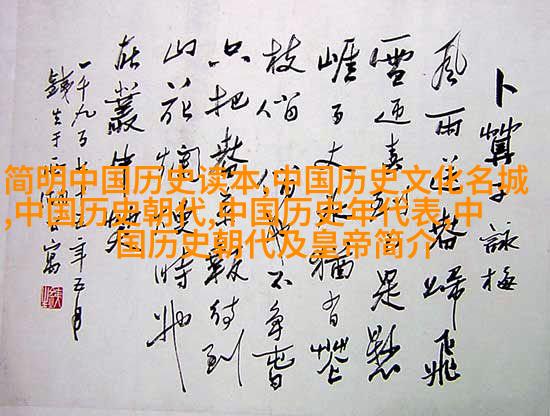 简明中国历史读本,中国历史文化名城
,中国历史朝代,中国历史年代表,中
国历史朝代及皇帝简介
卜算子 詠梅
風雨送春歸飛
雪迎春到已是懸
崖百丈冰猶有花
枝俏 俏也不爭春
只把春來報待到
山花爛熳時她
在叢中笑
一千九百七十五年五月